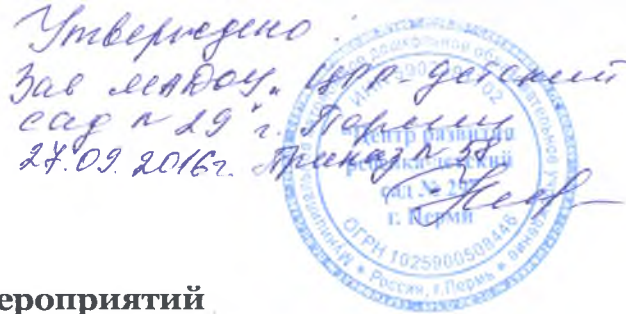 Утверждено:
Зав МАДОУ „ЦРР-детский
сад № 29" г. Перми
27.09.2016г. Приказ № 58
Центр развития
ребенка-детский
сад № 29
г. Перми
ОГРН 1025900508446
Россия, г.Пермь
ероприятий